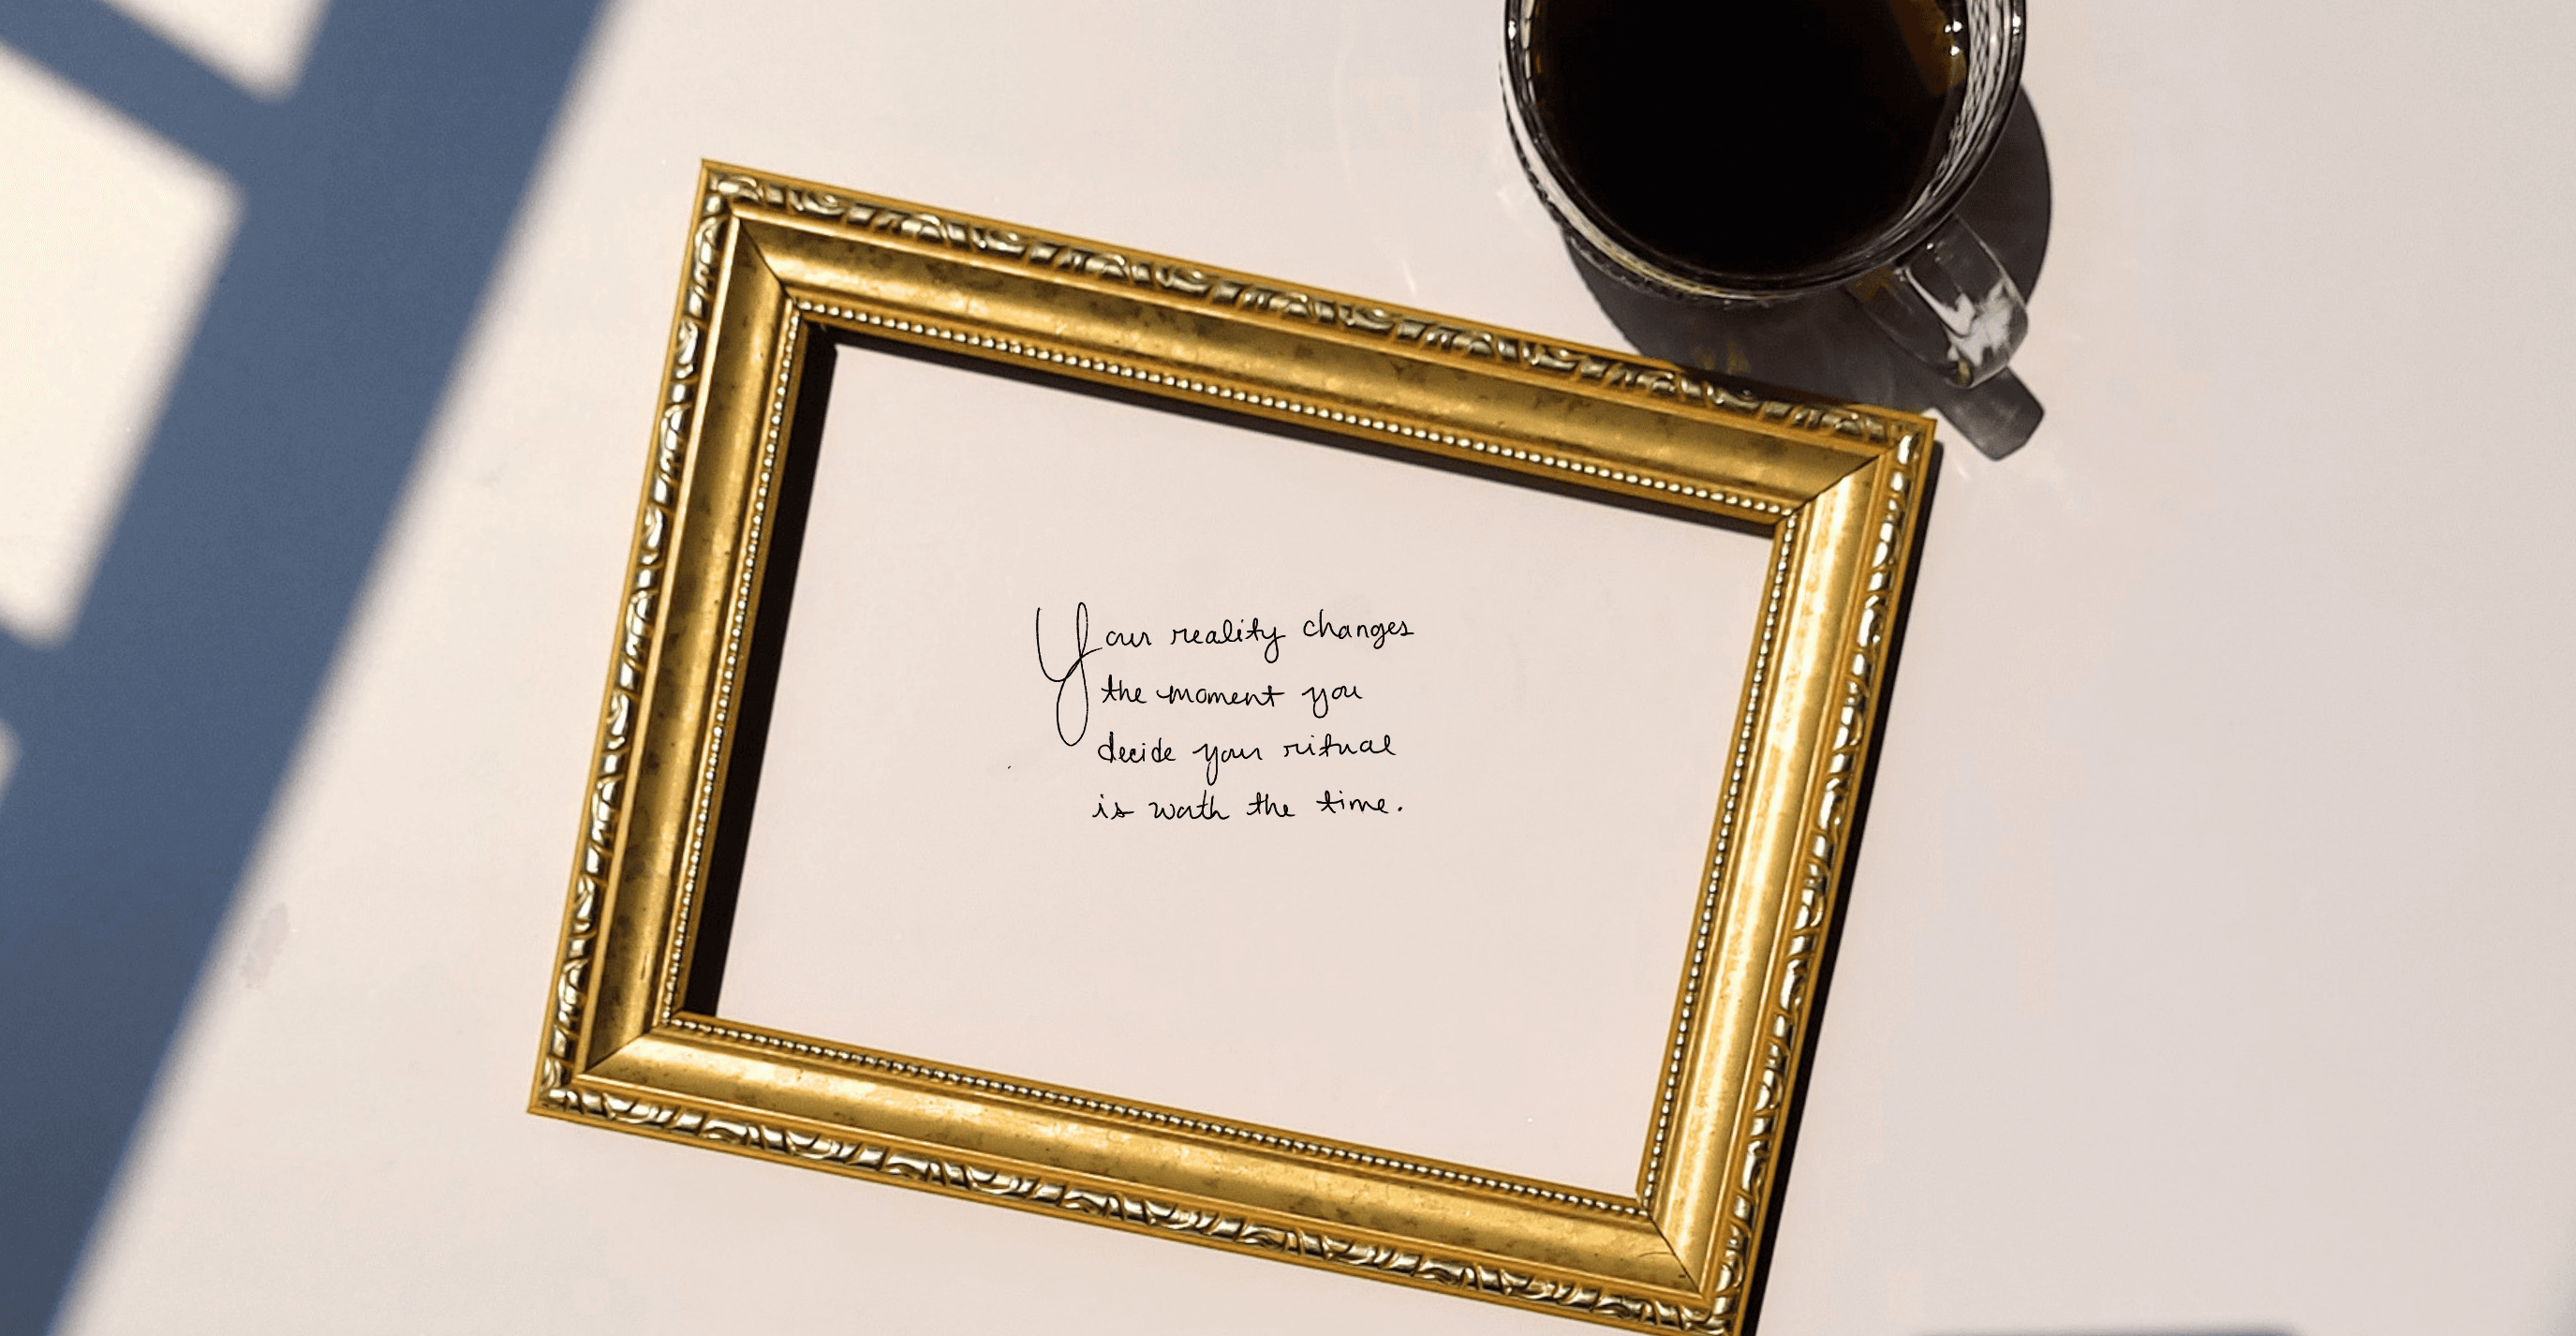 Your reality changes
the moment you
decide your ritual
is worth the time.